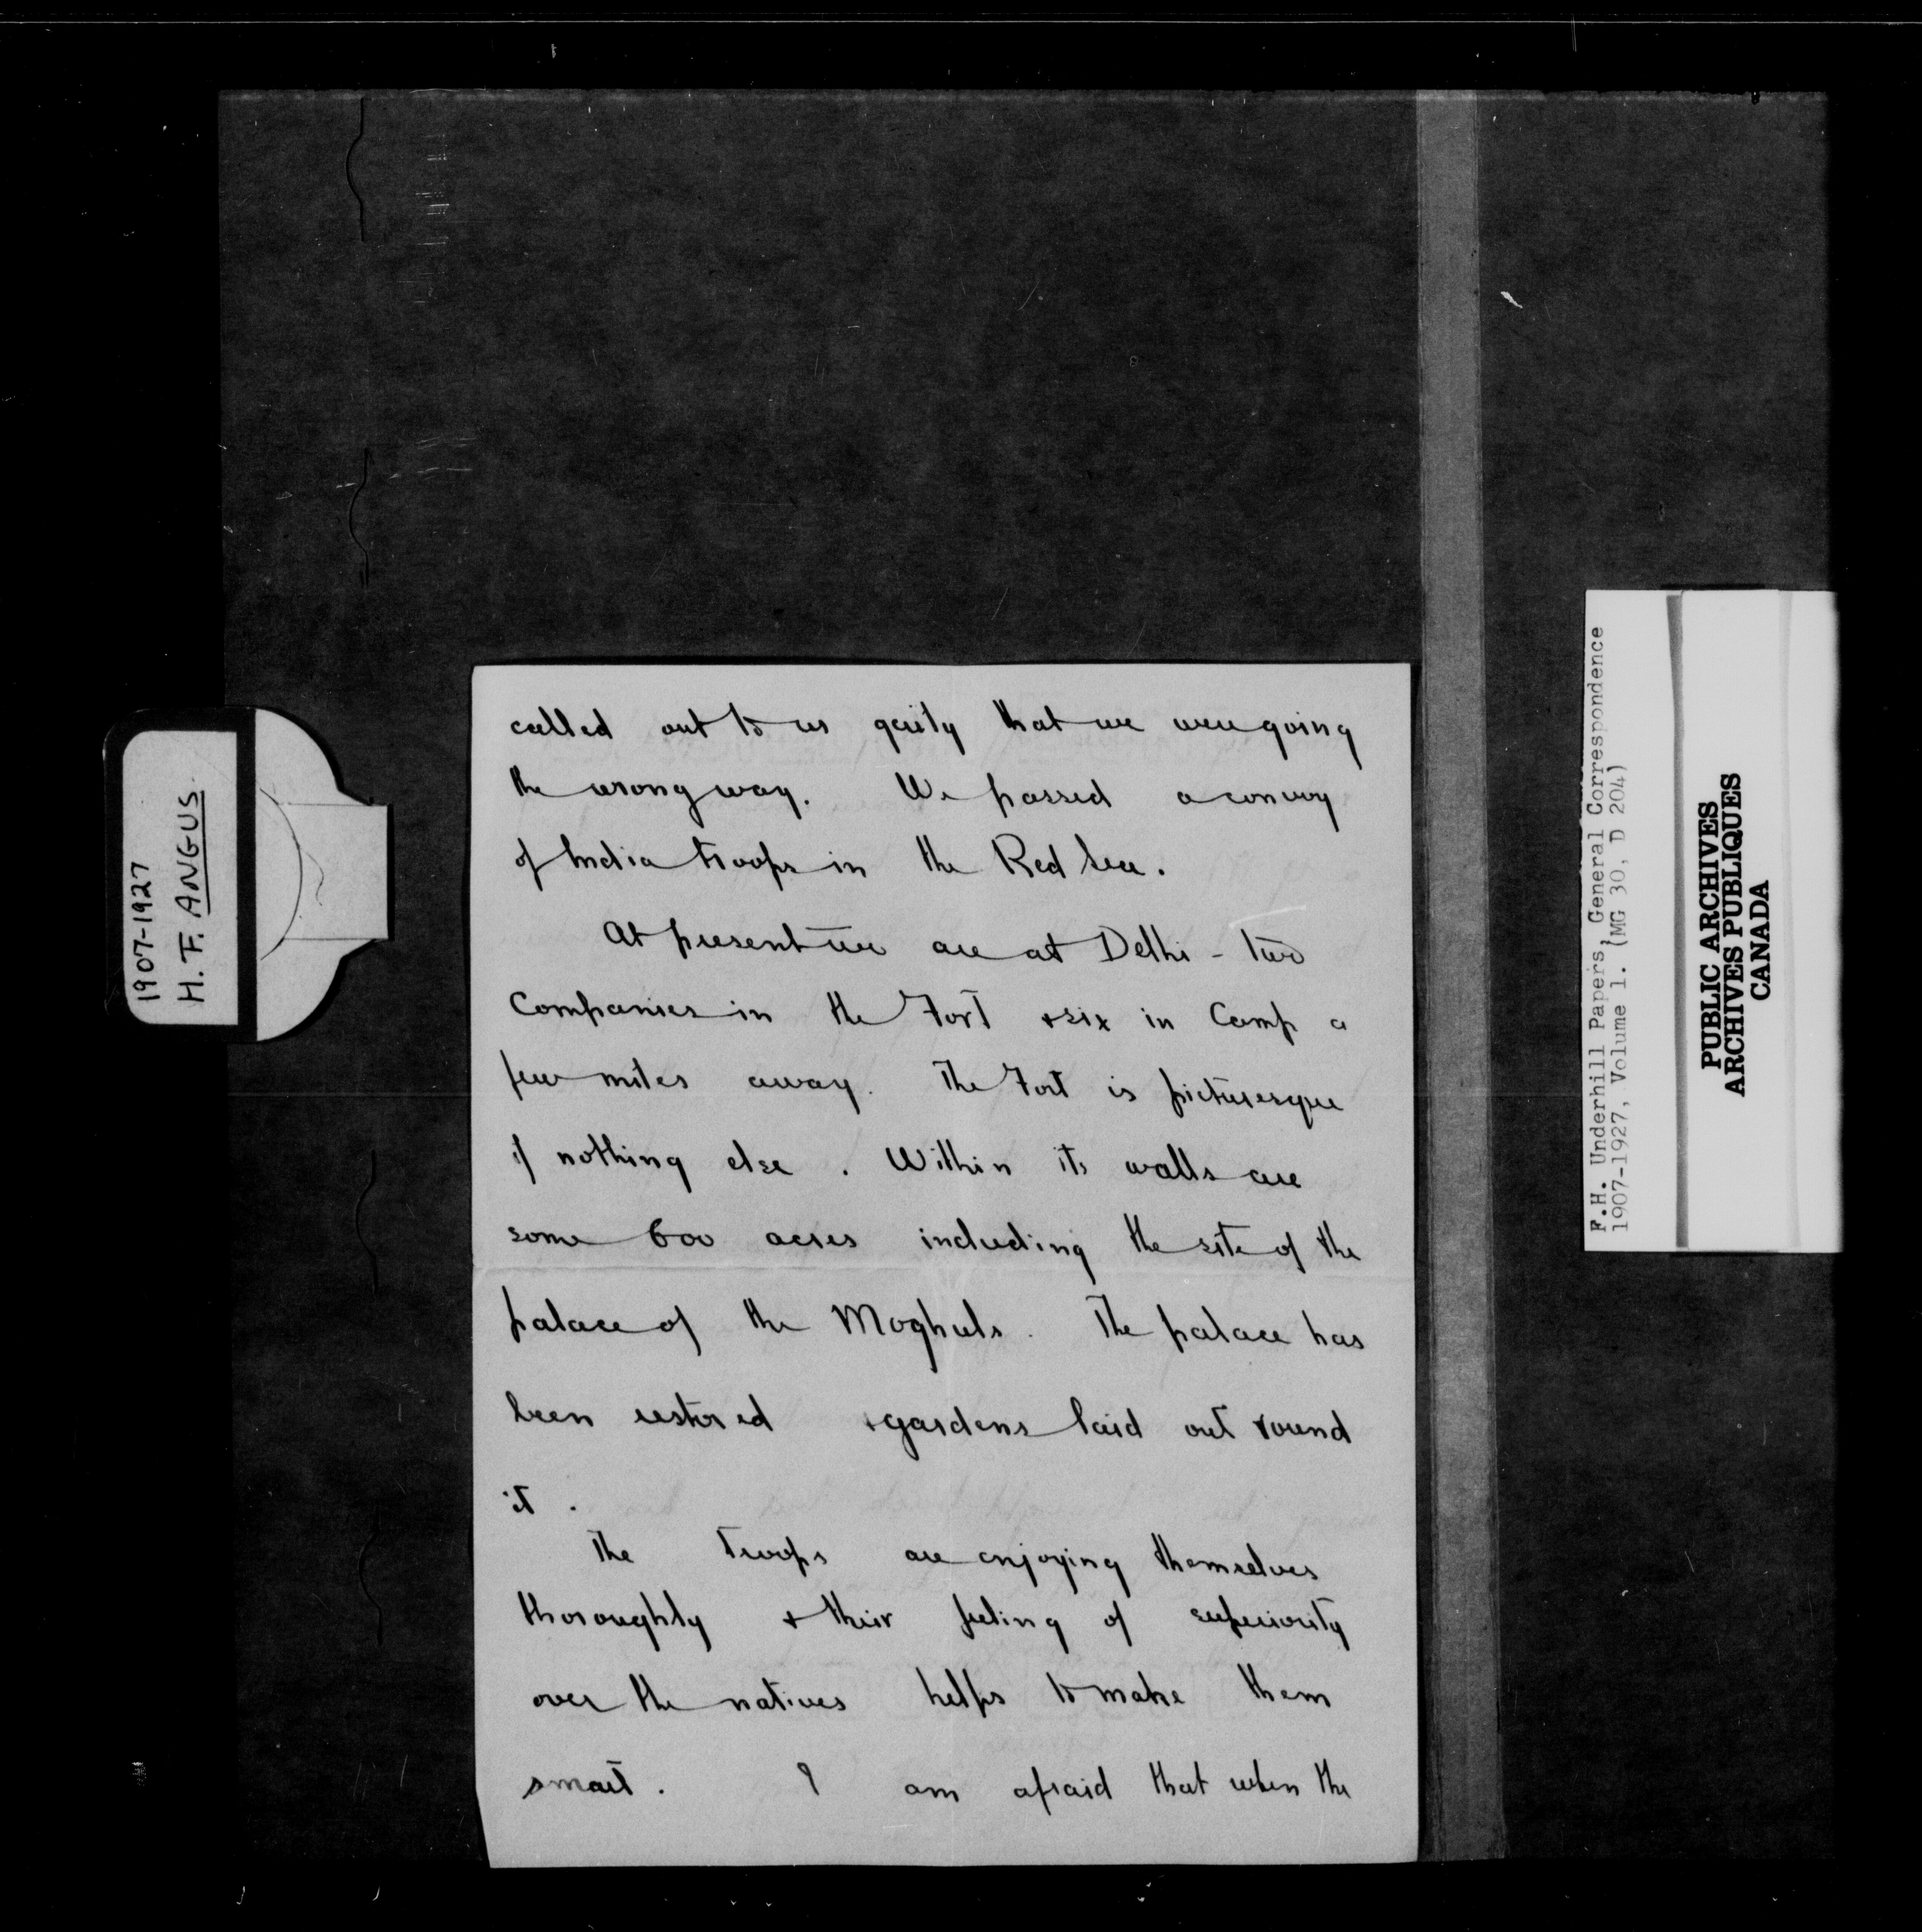 called out to us gaily that we were going
the wrong way. We passed a convoy
of India troops in the Red Sea.
At present we are at Delhi - two
Companies in the Fort + six in Camp a
few miles away. The Fort is picturesque
if nothing else. Within its walls are
some 600 acres including the site of the
palace of the Moghuls. The palace has
been restored + gardens laid out round
it.
The troops are enjoying themselves
thoroughly + their feeling of superiority
over the natives helps to make them
smart. I am afraid that when the
1907-1927
H. T. F. ANGUS.
F.H. Underhill Papers, General Correspondence
1907-1927, Volume 1. (MG 30, D 204)
PUBLIC ARCHIVES
ARCHIVES PUBLIQUES
CANADA